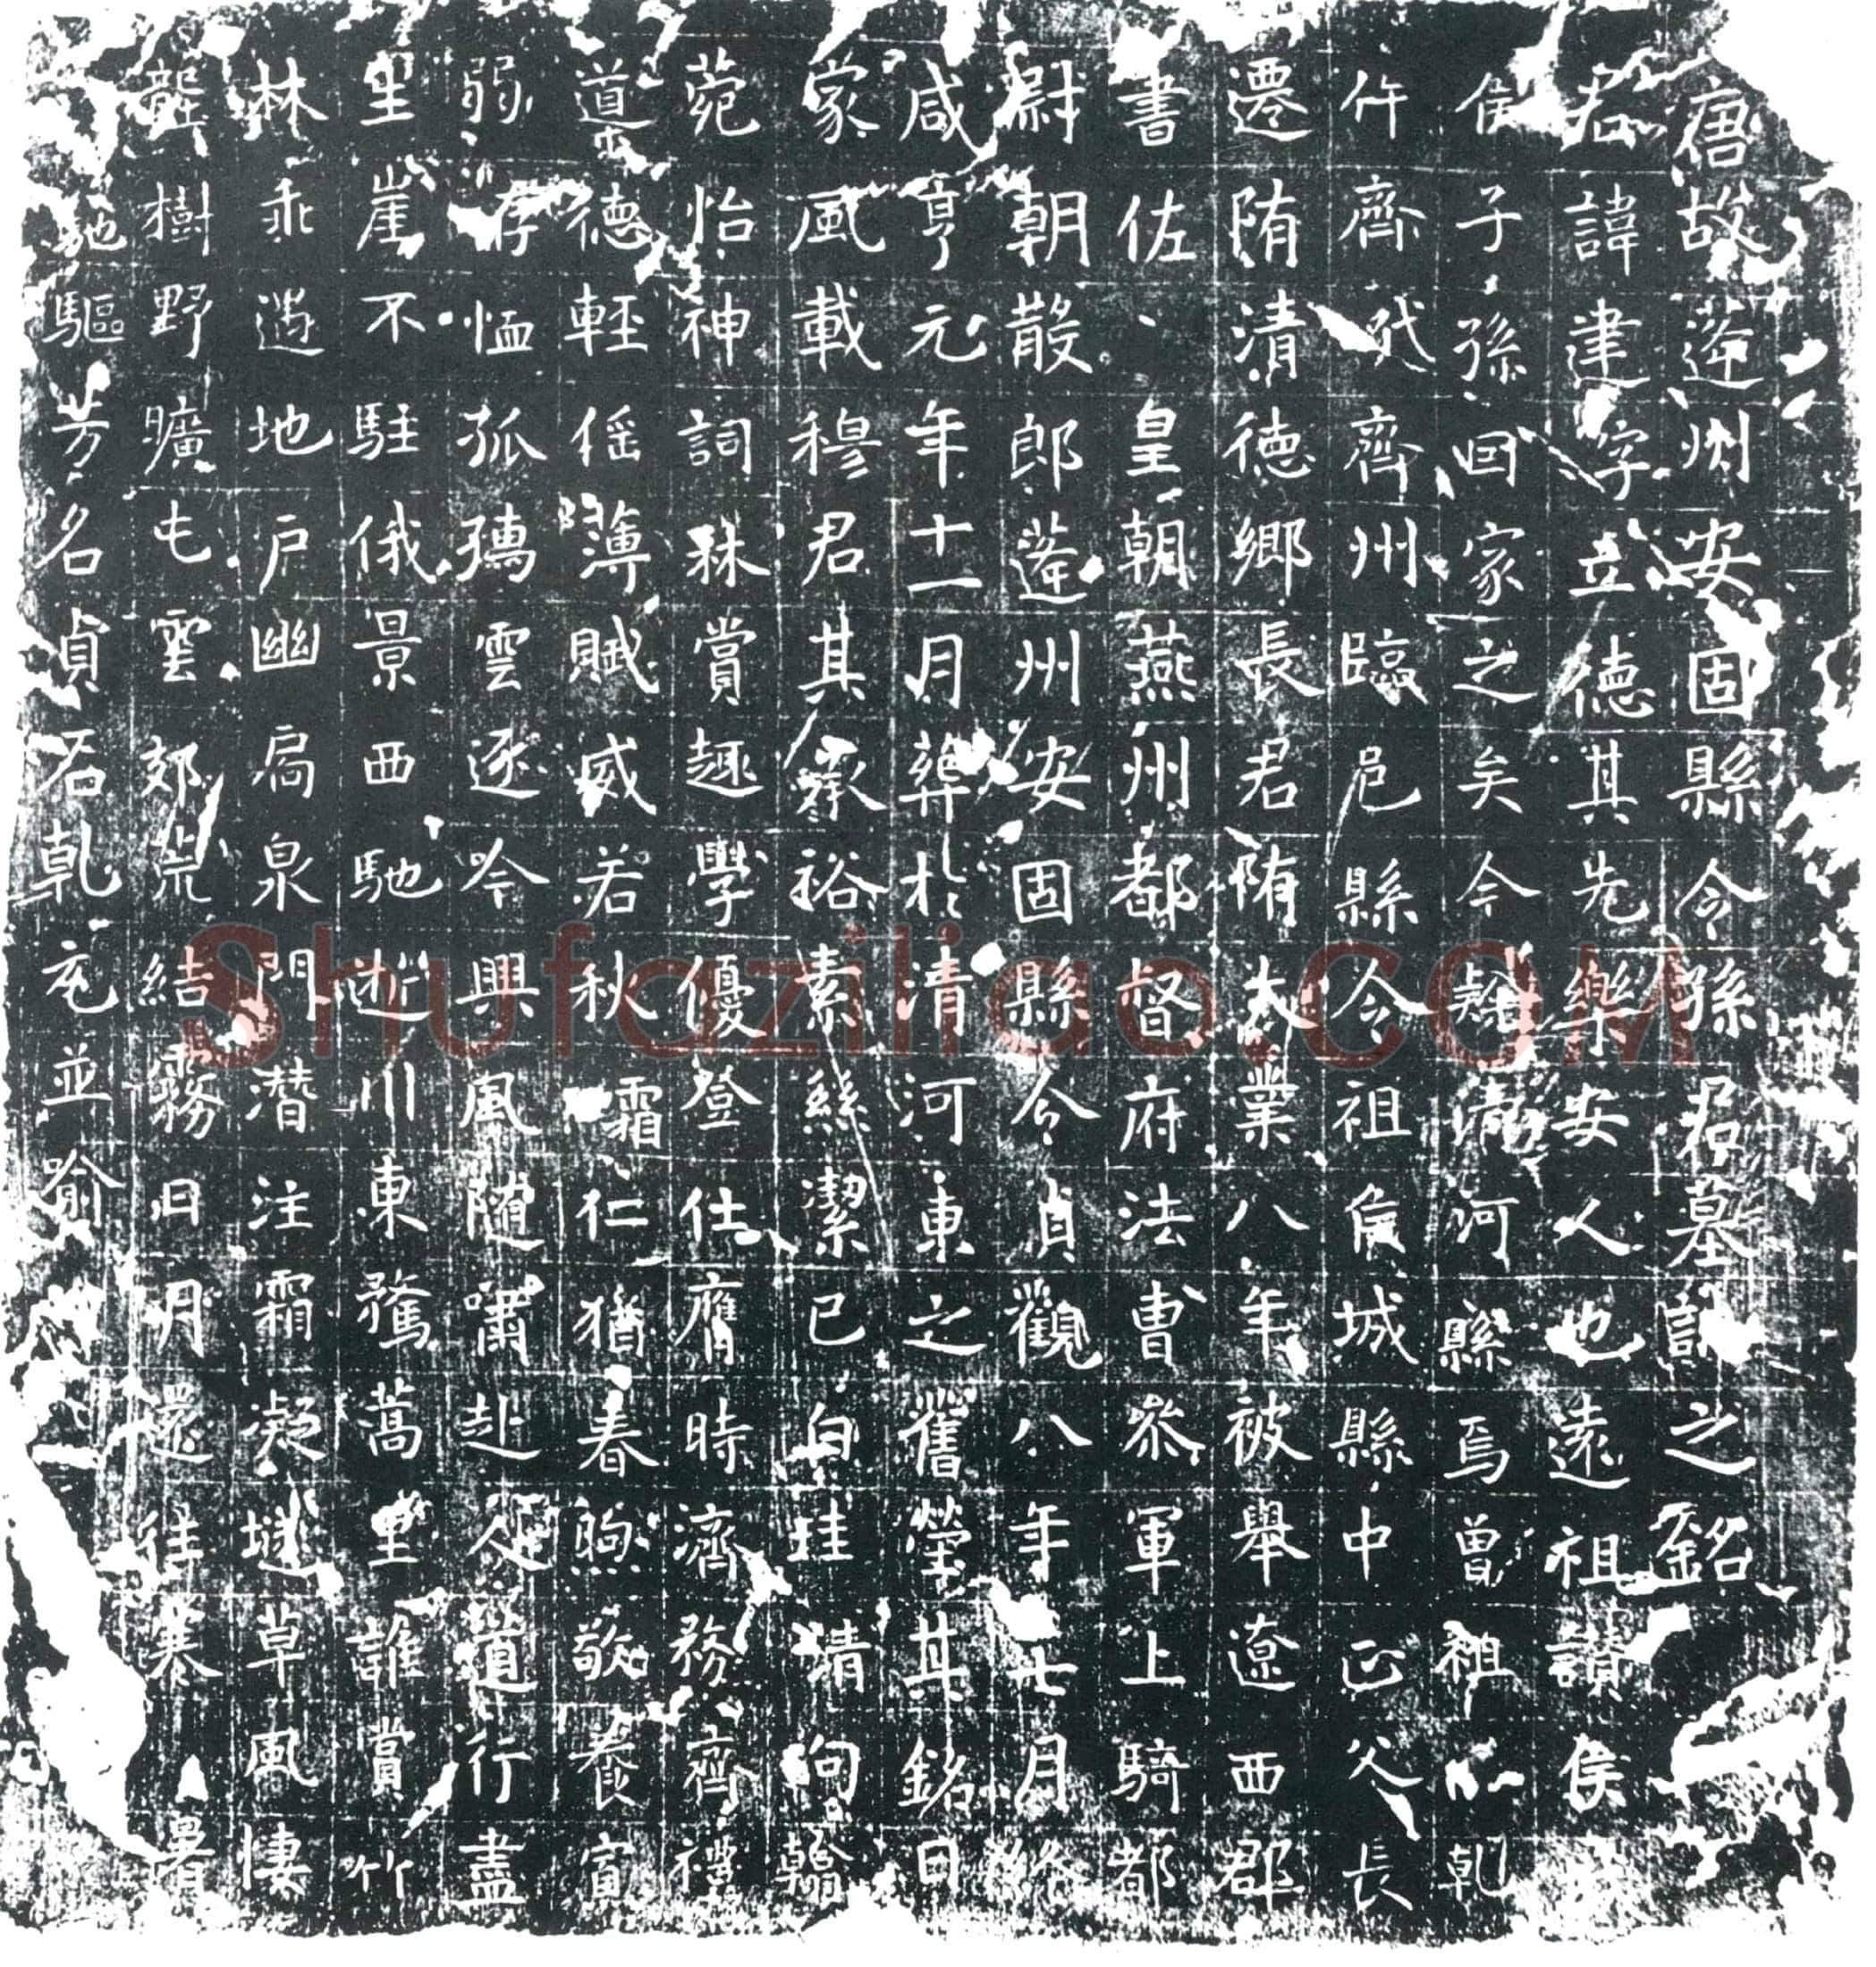 唐故蓬州安固縣令孫君墓誌之銘
君諱建字立德其先樂安人也遠祖讃侯
侯子孫因家之矣今疑清河縣焉曾祖乾
仵齊 齊州臨邑縣令祖俟城縣中正父長
遷隋清德鄉長君隋大業八年被舉遼西郡
書佐皇朝燕州都督府法曹叅軍上騎都
尉朝散郎蓬州安固縣令貞觀八年七月終
咸亨元年十一月葬於清河東之舊塋其銘曰
家風載穆君其承裕素絲潔已白珪清句翰
菀怡神詞林賞趣學優登仕膺時濟務齊禮
道德輕徭薄賦威若秋霜仁猶春煦敬養寡
弱存恤孤㷌雲逐吟興風隨嘯赴人道行盡
生崖不駐俄景西馳逝川東騖蒿里誰賞竹
林乖遊地户幽扃泉門潜注霜凝燧草風悽
聾樹野曠屯雲郊荒結霧日月還往寒暑
馳驅芳名貞石乾巛並喻
Shufaziliao.COM